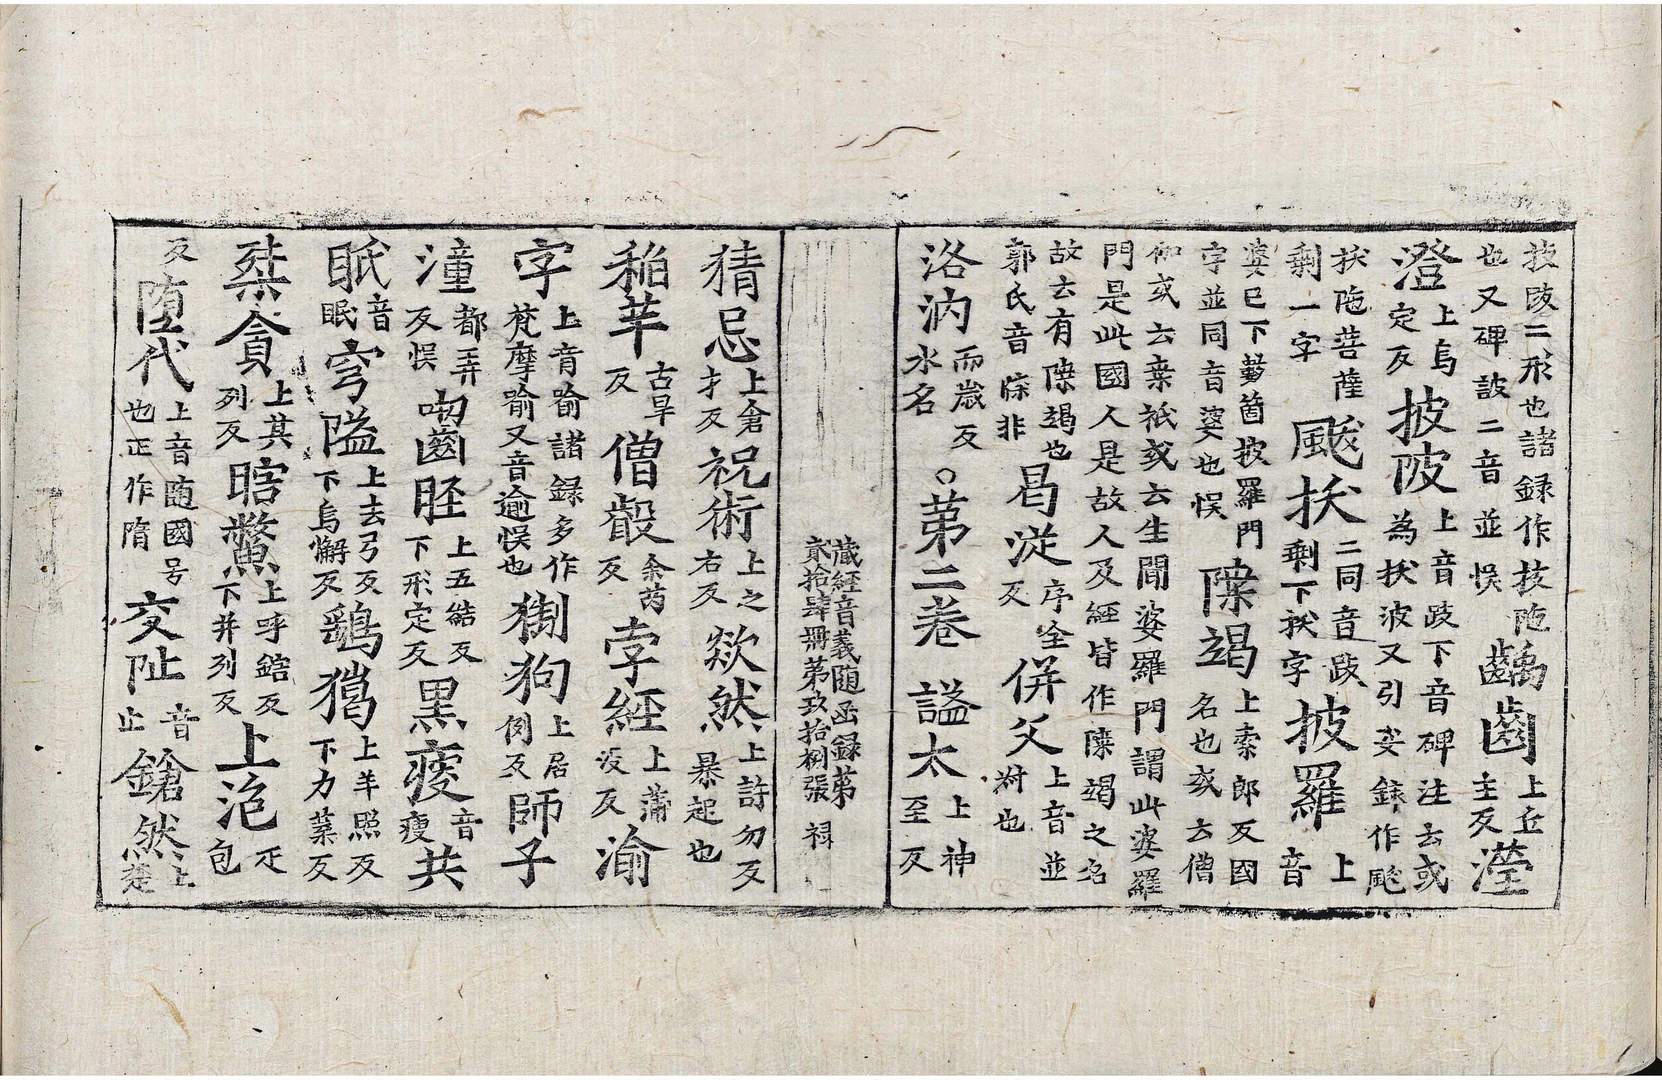 抜陂二形也諸録作技陁齲齒上丘主反瀅
也又碑詖二音並悮
澄上烏定反披陂上音跛下音碑注云或為拔波又引妾録作颰
拔陁菩薩颰拔二同音跋剩下拔字披羅上音
剩一字
婆已下數箇披羅門𡫏竭上索郎反國名也或云僧
字並同音婆也悮
伽或云葉衹或云生聞婆羅門謂此婆羅
門是此國人是故人及經皆作𡫏竭之名
故云有𡫏竭也曷漇序全反併父上音並對也
郭氏音寐非
洛汭而嵗反水名○第二卷 謚太上神至反
藏經音義随函録第
貳拾肆冊第玖拾捌張 禄
猜忌上倉才反祝術上之右反欻然上許勿反暴起也
稲芉古旱反僧㲄余芮反孛經上蒲沒反渝
字上音喻諸録多作梵摩喻又音逾悮也猘狗上居例反師子
潼都弄反悮囓齒上五結反脛下形定反黒瘦音瘦共
眡音眠穹隘上去弓反下烏懈反鷂獦上羊照反下力葉反
桀貪上其列反瞎鱉上呼鎋反下并列反上浥疋包
反堕代上音随國号也正作隋交阯音止鎗然上楚